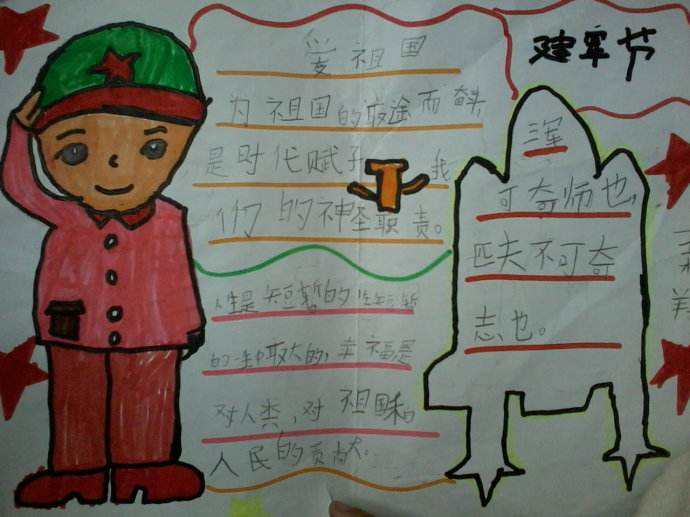 爱祖国
为祖国的前途而奋斗,
是时代赋予 我
们的神圣职责。
人生是短暂的
的 最大的幸福是
对人类,对祖国和
人民的贡献。
建军节
三军
可夺师也,
匹夫不可夺
志也。